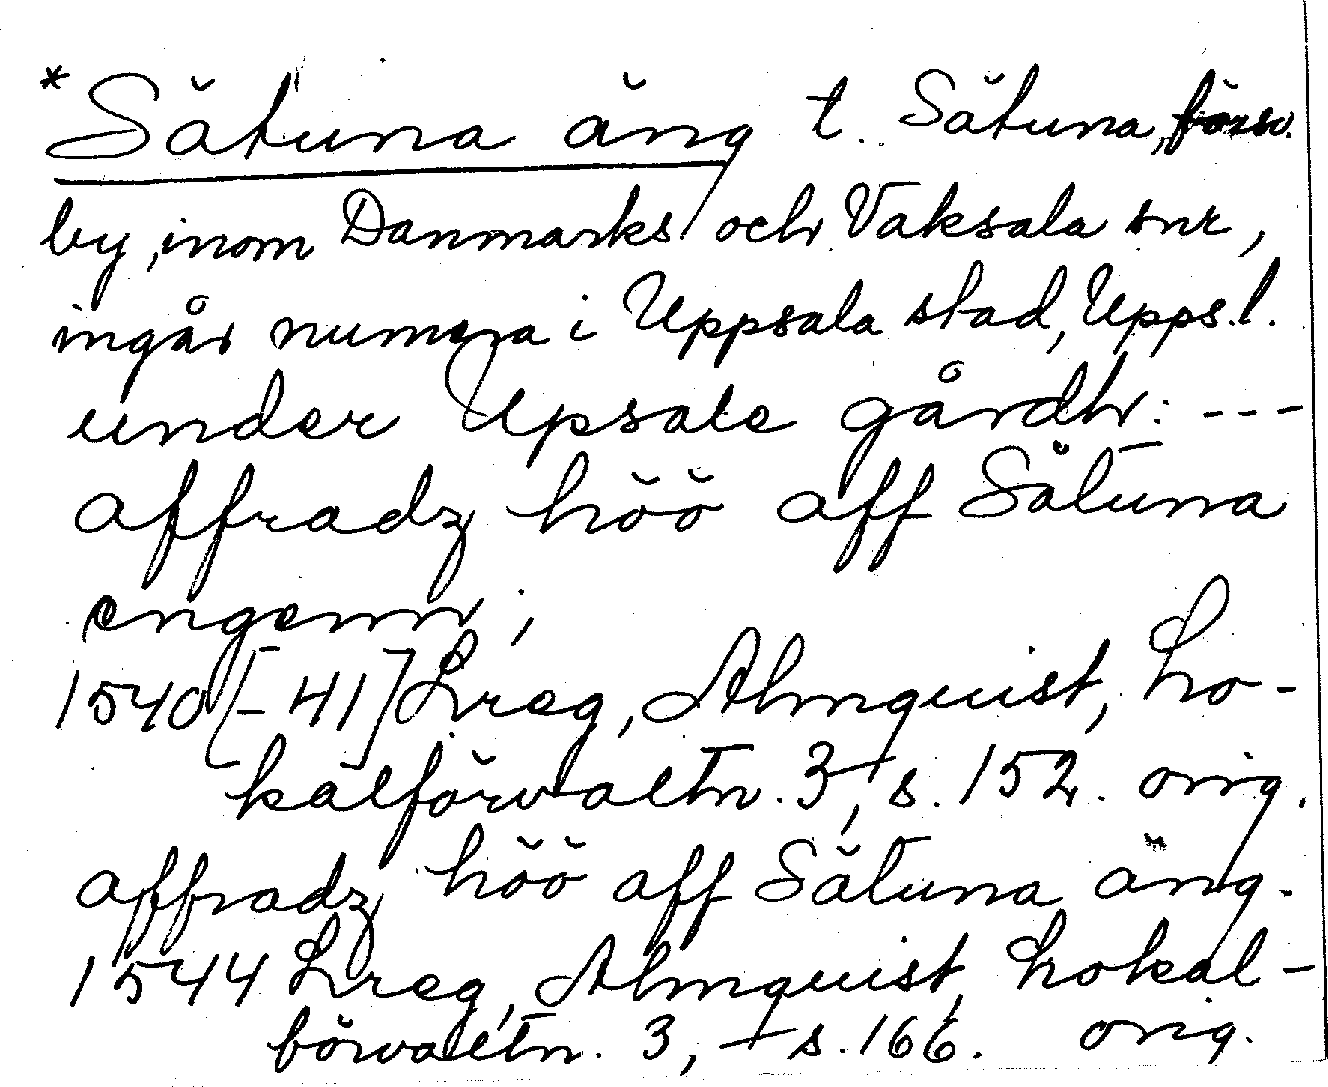 *Sätuna äng t. Sätuna, försv.
by, inom Danmarks och Vaksala snr,
ingår numera i Uppsala stad, Upps.l.
under Upsale gårdh: ---
affradz höö aff Sätuna
engenn;
1540[-41] Lreg, Almquist, Lo-
kalförvaltn. 3, s. 152. orig.
affradz höö aff Sätuna äng.
1544 Lreg, Almquist, Lokal-
förvaltn. 3, s. 166. orig.